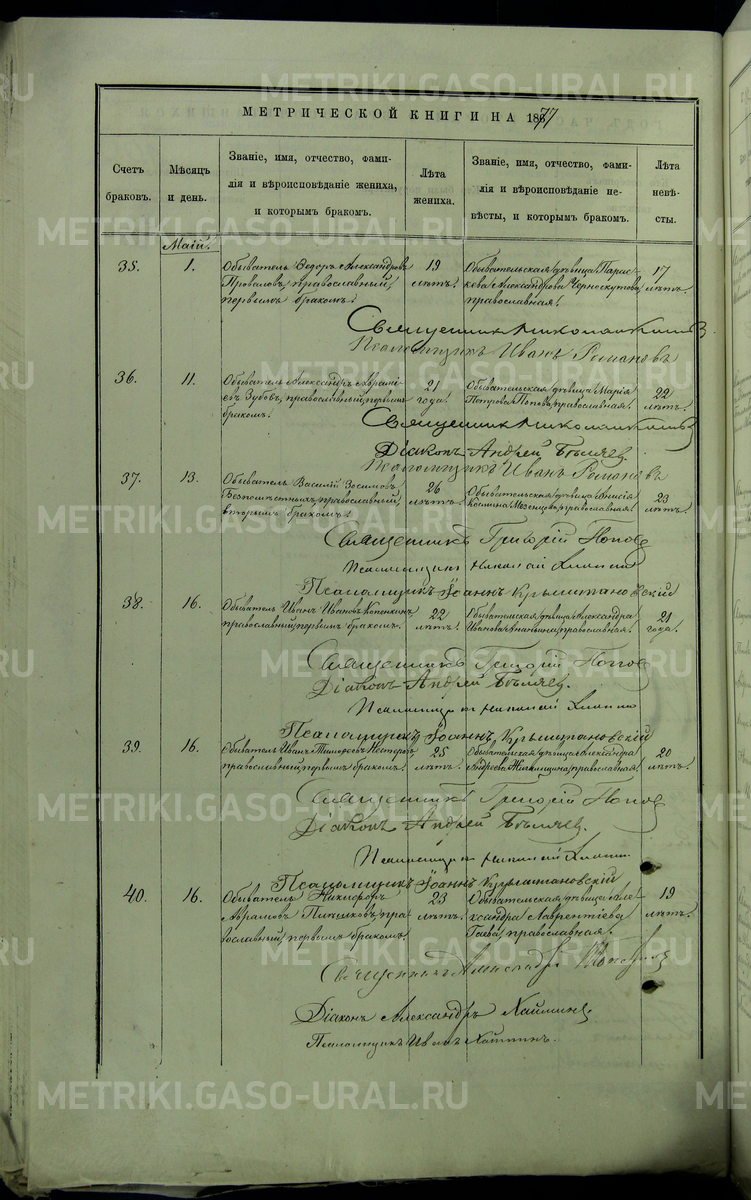 МЕТРИЧЕСКОЙ КНИГИ НА 1877
Счетъ браковъ.
Мѣсяцъ и день.
Званіе, имя, отчество, фами-
лія и вѣроисповѣданіе жениха,
и которымъ бракомъ.
Лѣта жениха.
Званіе, имя, отчество, фами-
лія и вѣроисповѣданіе не-
вѣсты, и которымъ бракомъ.
Лѣта невѣ-
сты.
Маій.
35.
1.
Обыватель Ѳедоръ Александровъ
православный,
первымъ бракомъ.
19
лѣтъ.
Обывательская дѣвица Парас-
кева Александрова Черноскутова,
православная.
17
лѣтъ.
Священникъ Николай
Псаломщикъ Иванъ Романовъ
36.
11.
Обыватель Александръ Аврамі-
евъ Зубовъ, православный, первымъ
бракомъ.
21
года.
Обывательская дѣвица Марія
Петрова Попова, православная.
22
лѣтъ.
Священникъ Николай
Діаконъ Андрей Бѣляевъ
Псаломщикъ Иванъ Романовъ
37.
13.
Обыватель Василій Зосимовъ
Безпомѣстныхъ, православный,
вторымъ бракомъ.
26
лѣтъ.
Обывательская дѣвица Анисія
Мезенцова, православная.
23
лѣтъ.
Священникъ Григорій Поповъ
Псаломщикъ Николай
Псаломщикъ Іоаннъ Крылатановскій
38.
16.
Обыватель Иванъ Ивановъ Копенкинъ,
православный, первымъ бракомъ.
22
лѣтъ.
Обывательская дѣвица Александра
Иванова Ананьина, православная.
21
года.
Священникъ Григорій Поповъ
Діаконъ Андрей Бѣляевъ.
Псаломщикъ Николай
Псаломщикъ Іоаннъ Крылатановскій
39.
16.
Обыватель Иванъ Тимофеевъ Нестеровъ,
православный, первымъ бракомъ.
25
лѣтъ.
Обывательская дѣвица Александра
Андреева православная.
20
лѣтъ.
Священникъ Григорій Поповъ
Діаконъ Андрей Бѣляевъ.
Псаломщикъ Николай
Псаломщикъ Іоаннъ Крылатановскій
40.
16.
Обыватель Никифоръ
Аврамовъ пра-
вославный, первымъ бракомъ.
23
лѣтъ.
Обывательская дѣвица Але-
ксандра Лаврентіева
Гаева, православная.
19
лѣтъ.
Священникъ Александръ
Діаконъ Александръ Хайминъ.
Псаломщикъ Иванъ
METRIKI.GASO-URAL.RU